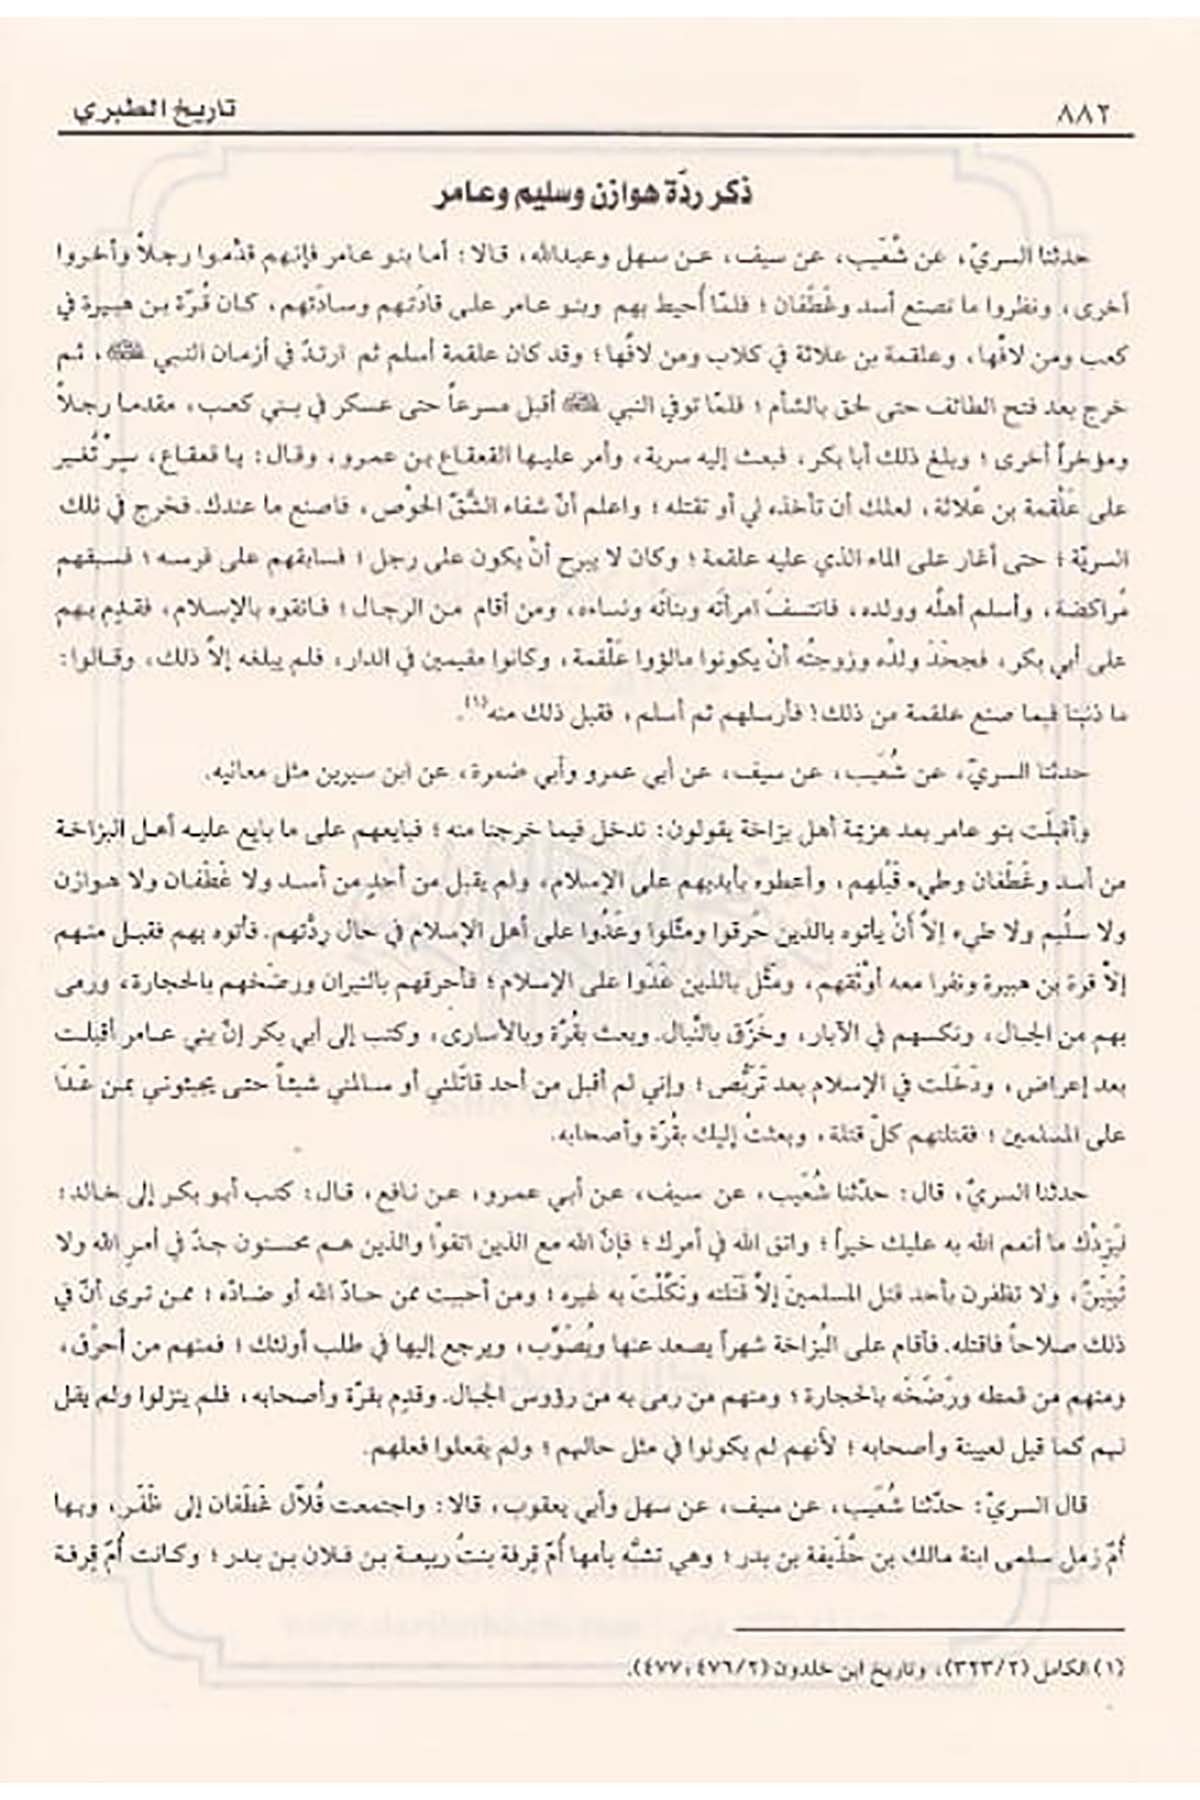 ٨٨٢
تاريخ الطبري
ذكر ردّة هوازن وسليم وعامر
حدثنا السريّ، عن شُعَيب، عن سيف، عن سهل وعبدالله، قالا: أما بنو عامر فإنهم قدّموا رجلاً وأخروا
أخرى، ونظروا ما تصنع أسد وغَطَفان؛ فلمّا أحيط بهم وبنو عامر على قادَتهم وسادَتهم، كان قُرّة بن هبيرة في
كعب ومن لافّها، وعلقمة بن علاثة في كلاب ومن لافّها؛ وقد كان علقمة أسلم ثم ارتدّ في أزمان النبي ﷺ، ثم
خرج بعد فتح الطائف حتى لحق بالشأم؛ فلمّا توفي النبي ﷺ أقبل مسرعاً حتى عسكر في بني كعب، مقدما رجلاً
ومؤخراً أخرى؛ وبلغ ذلك أبا بكر، فبعث إليه سرية، وأمر عليها القعقاع بن عمرو، وقال: يا قعقاع، سِرْ تُغير
على عَلْقمة بن عُلاثة، لعلك أن تأخذه لي أو تقتله؛ واعلم أنّ شفاء الشَّقّ الحَوْص، فاصنع ما عندك. فخرج في تلك
السريّة؛ حتى أغار على الماء الذي عليه علقمة؛ وكان لا يبرح أنْ يكون على رجل؛ فسابقهم على فرسه؛ فسبقهم
مُراكضة، وأسلم أهلُه وولده، فانتسفَ امرأتَه وبناتَه ونساءه، ومن أقام من الرجال؛ فاتقوه بالإسلام، فقدِم بهم
على أبي بكر، فجحَدَ ولدُه وزوجتُه أنْ يكونوا مالؤوا عَلْقمة، وكانوا مقيمين في الدار، فلم يبلغه إلاّ ذلك، وقالوا:
ما ذنبنا فيما صنع علقمة من ذلك! فأرسلهم ثم أسلم، فقبل ذلك منه(١).
حدثنا السريّ، عن شُعَيب، عن سيف، عن أبي عمرو وأبي ضمرة، عن ابن سيرين مثل معانيه.
وأقبلَت بنو عامر بعد هزيمة أهل بزاخة يقولون: ندخل فيما خرجنا منه؛ فبايعهم على ما بايع عليه أهل البزاخة
من أسد وغَطَفان وطيء قَبْلهم، وأعطوه بأيديهم على الإسلام، ولم يقبل من أحدٍ من أسد ولا غَطَفان ولا هوازن
ولا سلُيم ولا طيء إلاّ أنْ يأتوه بالذين حرقوا ومثّلوا وعَدُوا على أهل الإسلام في حال رِدّتهم. فأتوه بهم فقبل منهم
إلاّ قرة بن هبيرة ونفرا معه أوْثقهم، ومثّل بالذين عَدَوا على الإسلام؛ فأحرقهم بالنيران ورضَخهم بالحجارة، ورمى
بهم من الجبال، ونكسهم في الآبار، وخَزّق بالنّبال. وبعث بقُرّة وبالأسارى، وكتب إلى أبي بكر إنّ بني عامر أقبلت
بعد إعراض، ودَخَلت في الإسلام بعد تَرَبُّص؛ وإني لم أقبل من أحد قاتَلني أو سالمني شيئاً حتى يجيئوني بمن عَدَا
على المسلمين؛ فقتلتهم كلّ قتلة، وبعثتُ إليك بقُرّة وأصحابه.
حدثنا السريّ، قال: حدّثنا شُعَيب، عن سيف، عن أبي عمرو، عن نافع، قال: كتب أبو بكر إلى خالد:
ليَزِدْك ما أنعم الله به عليك خيراً؛ واتق الله في أمرك؛ فإنّ الله مع الذين اتقوْا والذين هم محسنون جدّ في أمرِ الله ولا
تَنِيَنّ، ولا تظفرن بأحد قتل المسلمين إلاّ قتلته ونكّلْتَ به غيره؛ ومن أحببت ممن حادّ الله أو ضادّه؛ ممن ترى أنّ في
ذلك صلاحاً فاقتله. فأقام على البُزاخة شهراً يصعد عنها ويُصَوِّب، ويرجع إليها في طلب أولئك؛ فمنهم من أحرَق،
ومنهم من قمطه ورَضَخَه بالحجارة؛ ومنهم من رمى به من رؤوس الجبال. وقدِم بقرّة وأصحابه، فلم ينزلوا ولم يقل
لهم كما قيل لعيينة وأصحابه؛ لأنهم لم يكونوا في مثل حالهم؛ ولم يفعلوا فعلهم.
قال السريّ: حدّثنا شُعَيب، عن سيف، عن سهل وأبي يعقوب، قالا: واجتمعت فُلاّل غَطَفان إلى ظَفَر، وبها
أمّ زمل سلمى ابنة مالك بن حُذَيفة بن بدر؛ وهي تشبَّه بأمها أمّ قِرفة بنتُ ربيعة بن فلان بن بدر؛ وكانت أمّ قِرفة
(١) الكامل (٣٢٣/٢)، وتاريخ ابن خلدون (٤٧٦/٢، ٤٧٧).